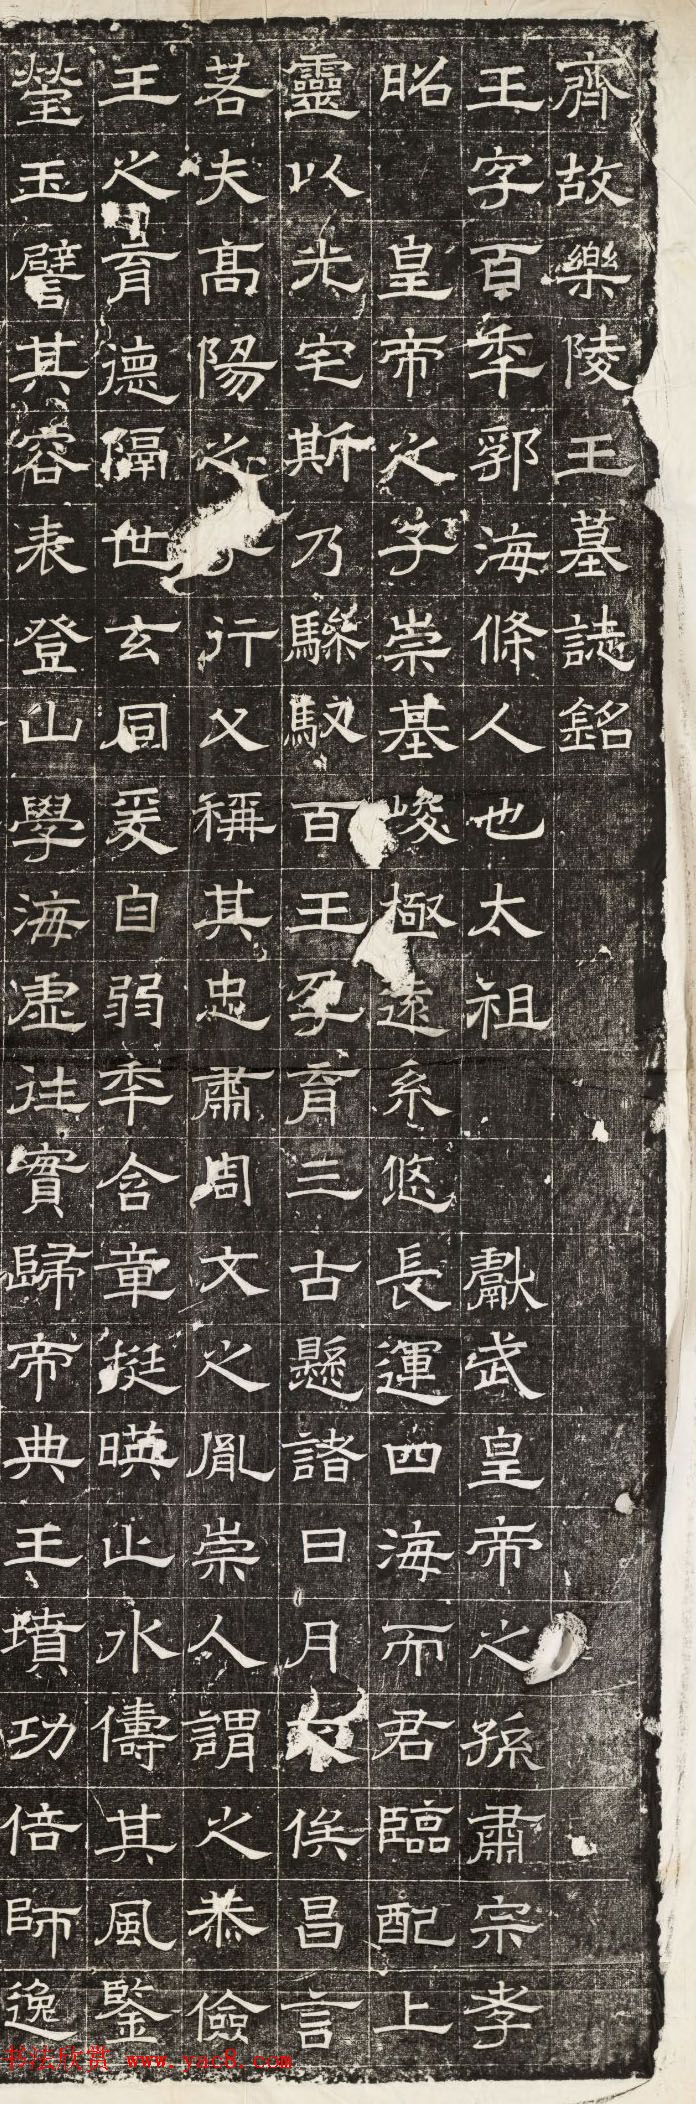 齊故樂陵王墓誌銘
王字百年郭海條人也太祖獻武皇帝之孫肅宗孝
昭皇帝之子崇基峻極遠系悠長運四海而君臨配上
靈以光宅斯乃驂馭百王孕育三古懸諸日月俟昌言
若夫高陽之子行父稱其忠肅周文之胤崇人謂之恭儉
王之育德隔世玄同爰自弱年含章挺暎止水儔其風鑒
瑩玉譬其容表登山學海虛往實歸帝典王墳功倍師逸
书法欣赏 www.yac8.com